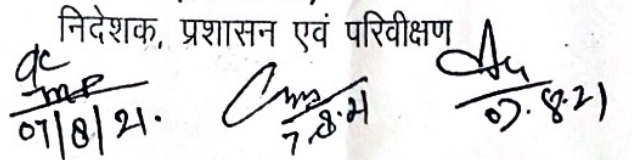 निदेशक, प्रशासन एवं परिवीक्षण
07/8/21. 7.8.21 07.8.21